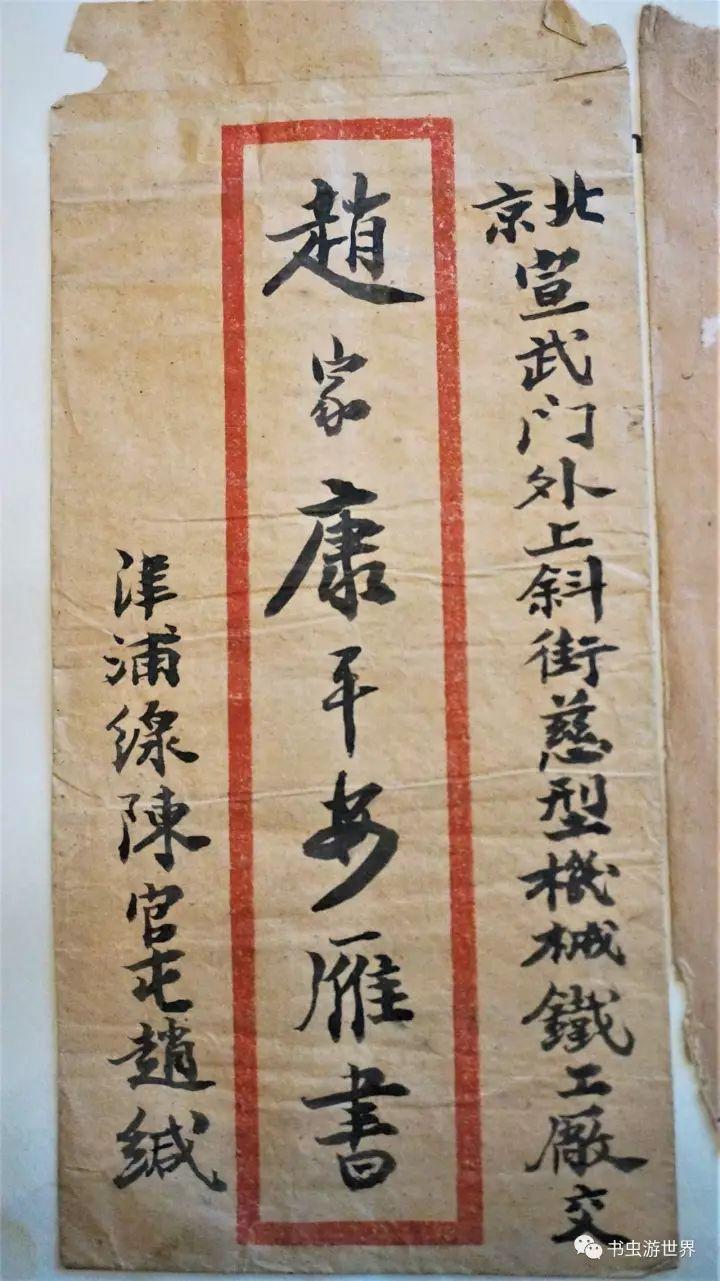 北京宣武门外上斜街慈型機械鐵工廠交
趙家康平安雁書
津浦線陳官屯趙緘
书虫游世界